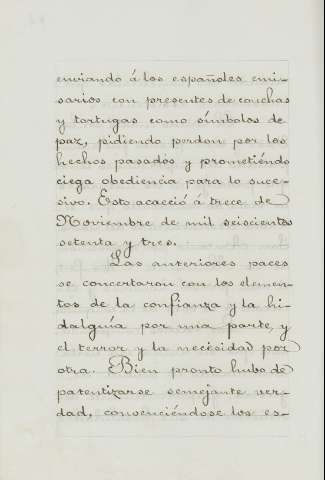 enviando á los españoles emi-
sarios con presentes de conchas
y tortugas como símbolos de
paz, pidiendo perdon por los
hechos pasados y prometiéndo
ciega obediencia para lo suce-
sivo. Esto acaeció á trece de
Noviembre de mil seiscientos
setenta y tres.
Las anteriores paces
se concertaron con los elemen-
tos de la confianza y la hi-
dalguía por una parte, y
el terror y la necesidad por
otra. Bien pronto hubo de
patentizarse semejante ver-
dad, convenciéndose los es-